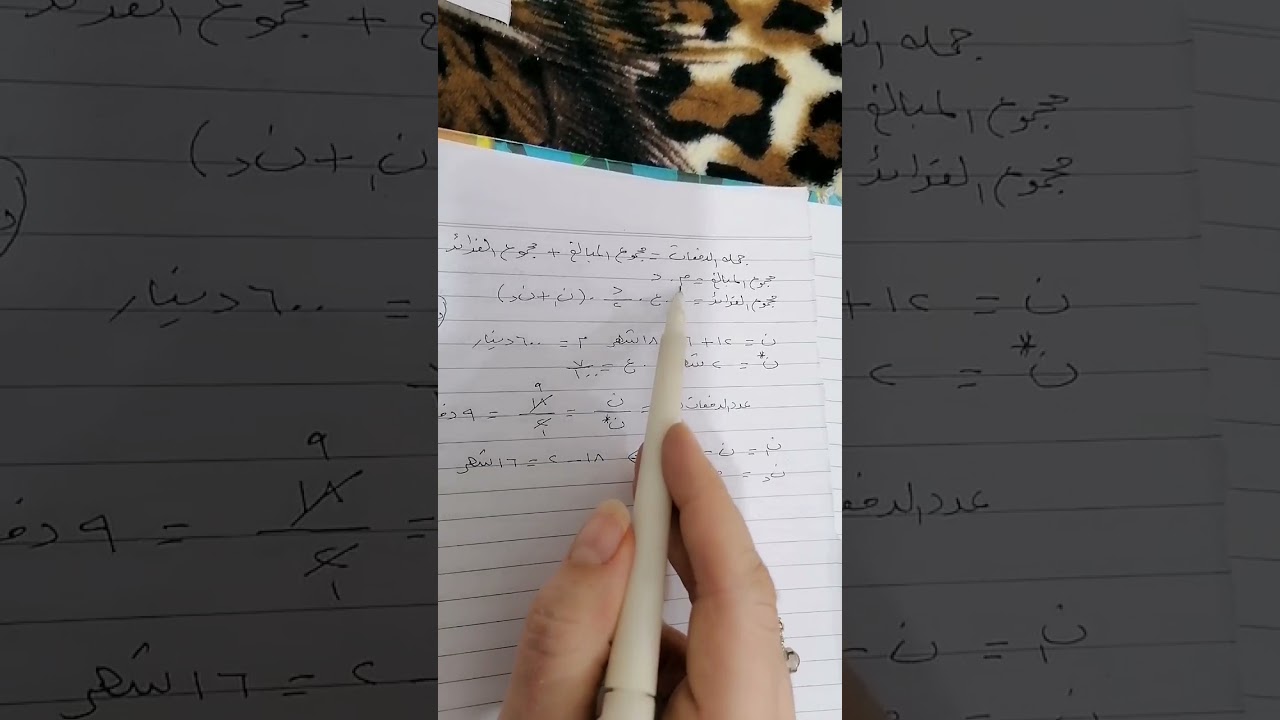 جملة الدفعات = مجموع المبالغ + مجموع الفوائد
مجموع المبالغ = م . د
مجموع الفوائد = ع . د/٢ . (ن١ + ند)
ن = ١٢ + ٦ ١٨ شهر م = ٦٠٠ دينار
ن* = ٢ ع = ٧/١٠٠
عدد الدفعات = ن/ن* = ١٨/٢ = ٩
ن١ = ن - ١٨ - ٢ = ١٦ شهر
ند =